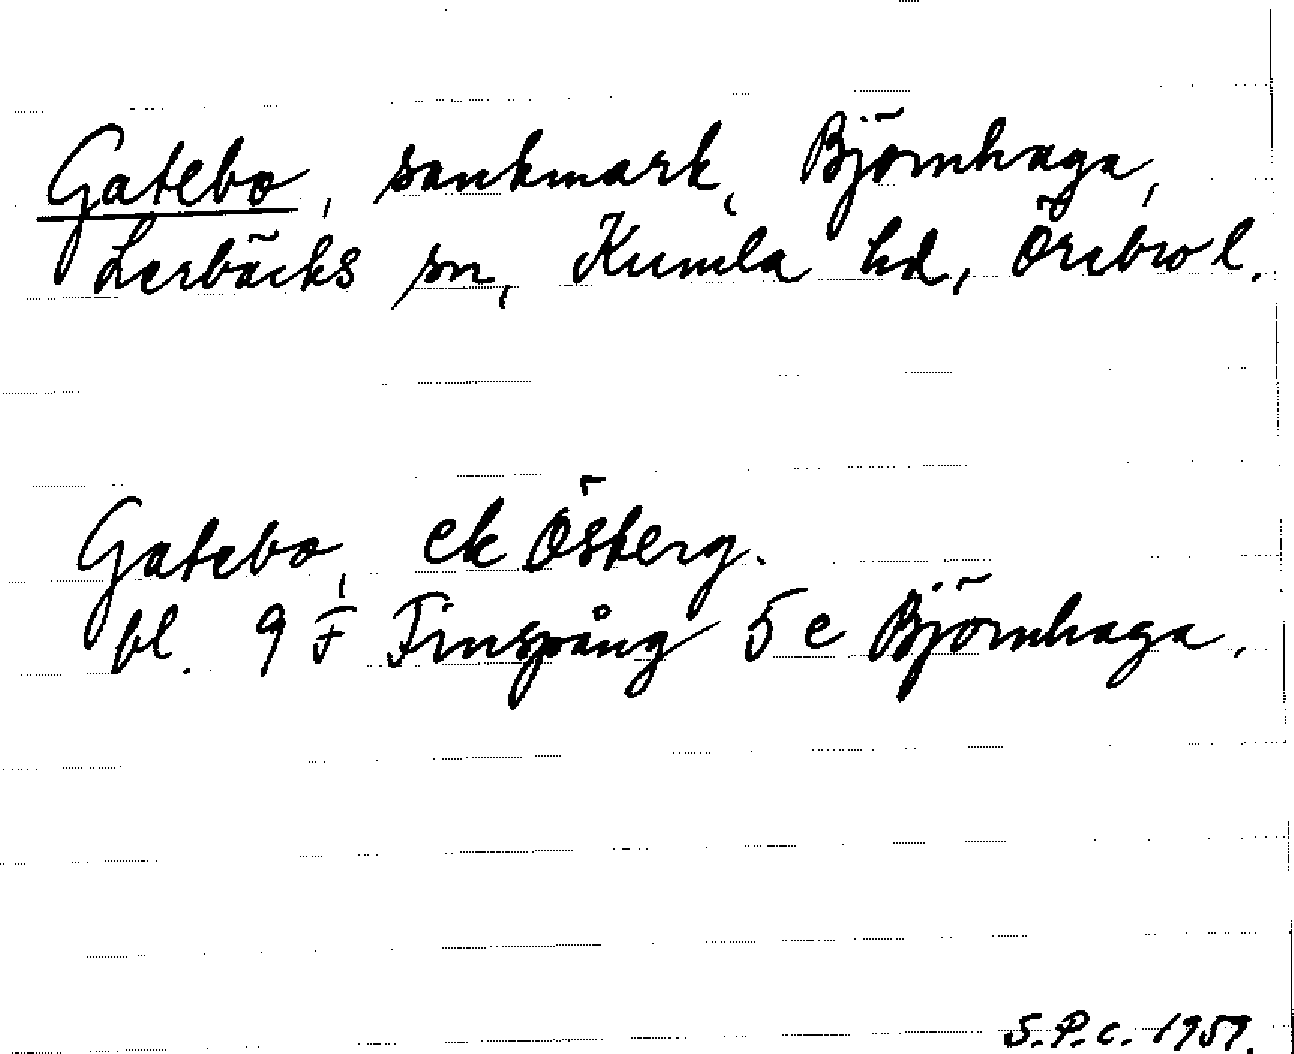 Gatebo, sankmark, Björnhaga,
Lerbäcks sn, Kumla hd, Örebro l.
Gatebo, ek Österg.
bl. 9 F Finspång 5 e Björnhaga.
S.P.c. 1959.